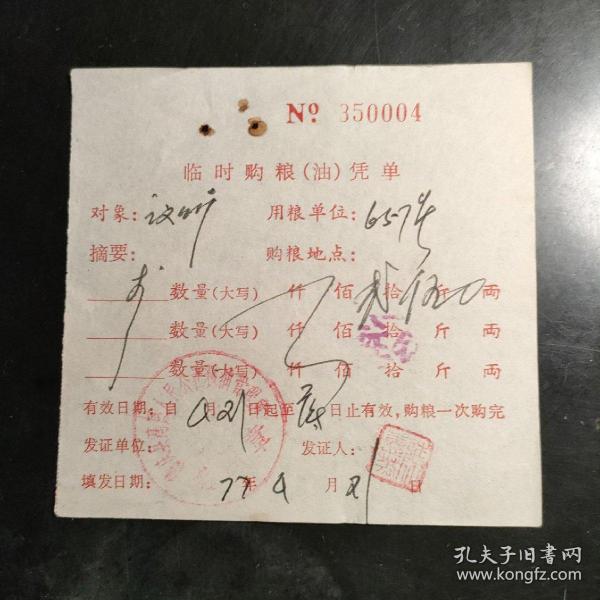 No 350004
临时购粮(油)凭单
对象: 用粮单位: 657
摘要: 购粮地点:
数量(大写) 仟 佰 贰拾伍斤 0 两
数量(大写) 仟 佰 拾 斤 两
数量(大写) 仟 佰 拾 斤 两
有效日期: 自4月21日起至 底 日止有效,购粮一次购完
发证单位: 发证人:
填发日期: 77年 4 月 21 日
孔夫子旧书网
www.kongfz.com